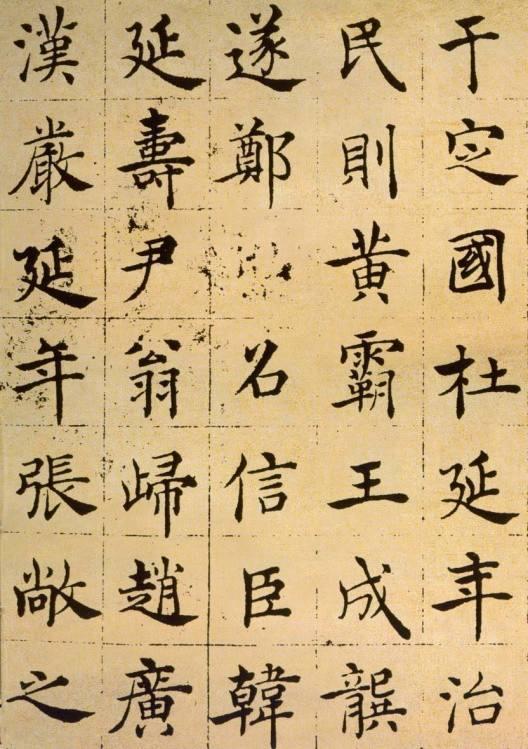 于定國杜延年治
民則黃霸王成龔
遂鄭召信臣韓
延壽尹翁歸趙廣
漢嚴延年張敞之